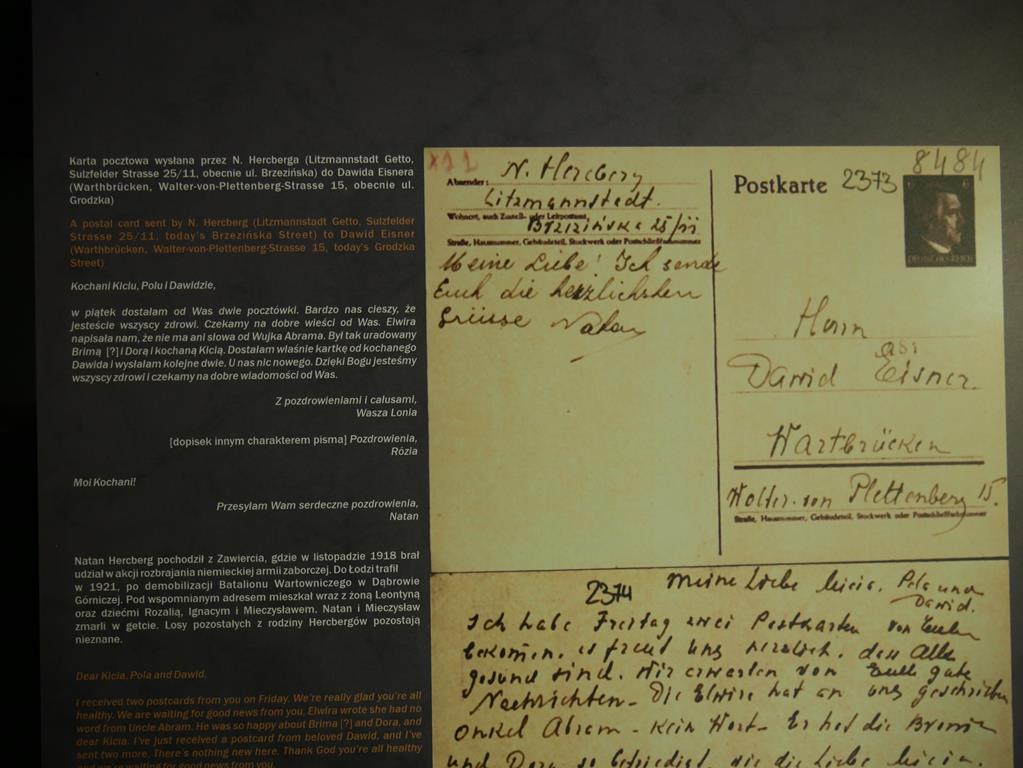 Karta pocztowa wysłana przez N. Hercberga (Litzmannstadt Getto,
Sulzfelder Strasse 25/11, obecnie ul. Brzezińska) do Dawida Eisnera
(Warthbrücken, Walter-von-Plettenberg-Strasse 15, obecnie ul.
Grodzka)
A postal card sent by N. Hercberg (Litzmannstadt Getto, Sulzfelder
Strasse 25/11, today's Brzezińska Street) to Dawid Eisner
(Warthbrücken, Walter-von-Plettenberg-Strasse 15, today's Grodzka
Street)
Kochani Kiciu, Polu i Dawidzie,
w piątek dostałam od Was dwie pocztówki. Bardzo nas cieszy, że
jesteście wszyscy zdrowi. Czekamy na dobre wieści od Was. Elwira
napisała nam, że nie ma ani słowa od Wujka Abrama. Był tak uradowany
Brimą [?] i Dorą i kochaną Kicią. Dostałam właśnie kartkę od kochanego
Dawida i wysłałam kolejne dwie. U nas nic nowego. Dzięki Bogu jesteśmy
wszyscy zdrowi i czekamy na dobre wiadomości od Was.
Z pozdrowieniami i całusami,
Wasza Lonia
[dopisek innym charakterem pisma] Pozdrowienia,
Rózia
Moi Kochani!
Przesyłam Wam serdeczne pozdrowienia,
Natan
Natan Hercberg pochodził z Zawiercia, gdzie w listopadzie 1918 brał
udział w akcji rozbrajania niemieckiej armii zaborczej. Do Łodzi trafił
w 1921, po demobilizacji Batalionu Wartowniczego w Dąbrowie
Górniczej. Pod wspomnianym adresem mieszkał wraz z żoną Leontyną
oraz dziećmi Rozalią, Ignacym i Mieczysławem. Natan i Mieczysław
zmarli w getcie. Losy pozostałych z rodziny Hercbergów pozostają
nieznane.
Dear Kicia, Pola and Dawid,
I received two postcards from you on Friday. We're really glad you're all
healthy. We are waiting for good news from you. Elwira wrote she had no
word from Uncle Abram. He was so happy about Brima [?] and Dora, and
dear Kicia. I've just received a postcard from beloved Dawid, and I've
sent two more. There's nothing new here. Thank God you're all healthy
and we're waiting for good news from you.
Absender: N. Hercberg
Litzmannstedt.
Wohnort, auch Zustell- oder Leitpostamt
Brzezińska 25/11
Straße, Hausnummer, Gebäudeteil, Stockwerk oder Postschließfachnummer
Meine Liebe! Ich sende
Euch die herzlichsten
Grüsse Natan
Postkarte 2373
8484
DEUTSCHES REICH
Herrn
Dawid Eisner.
Wartbrücken
Wolter-von Plettenberg 15.
Straße, Hausnummer, Gebäudeteil, Stockwerk oder Postschließfachnummer
2374
Meine Liebe Kicia, Pola und
Dawid.
Ich habe Freitag zwei Postkarten von Euch
bekomen. es freut uns herzlich. dass Alle
gesund sind. Wir erwarten von Euch gute
Nachrichten - Die Elwire hat an uns geschrieben
onkel Abram - kein Wort - Er hat die
und Dora so die die Liebe Kicia.